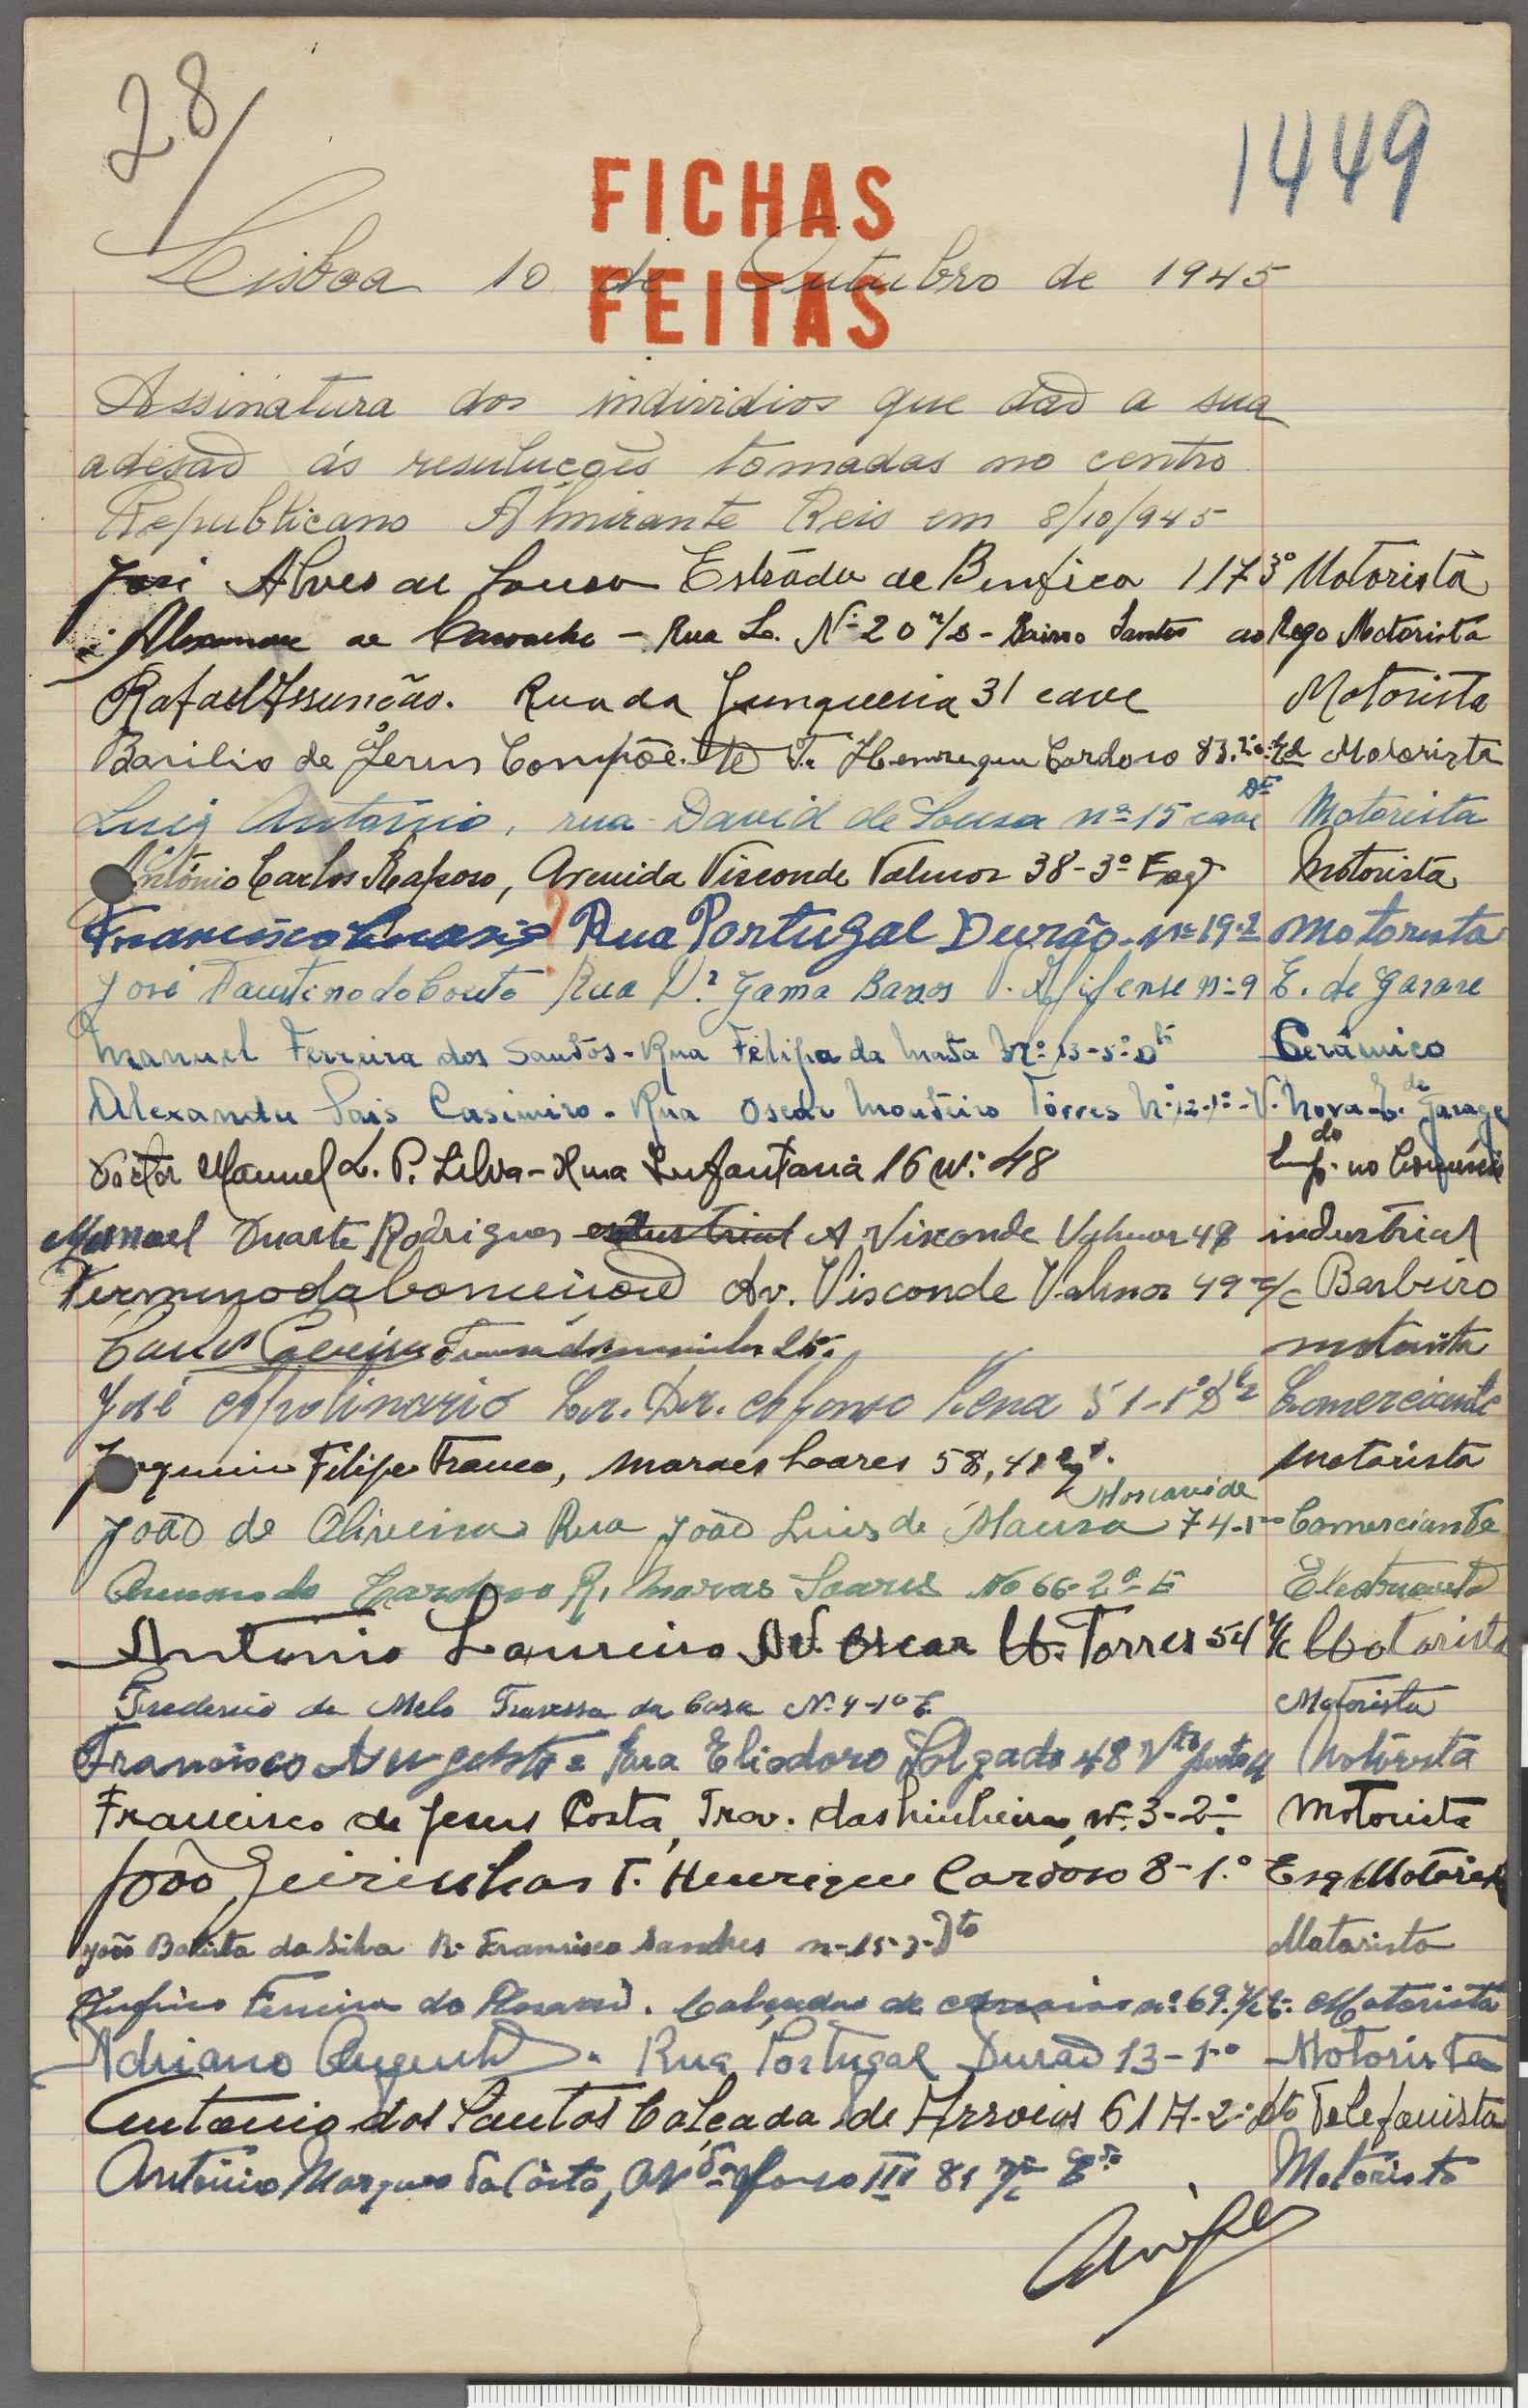 28/
1449
FICHAS
FEITAS
Lisboa 10 de Outubro de 1945
Assinatura dos individios que dão a sua
adesão ás resuluções tomadas no centro
Republicano Almirante Reis em 8/10/945
José Alves de Sousa Estráda de Benfica 117 3º Motorista
de Carvalho - Rua L. Nº 20 r/c - Bairro Santos ao Rego Motorista
Rafael Assunção. Rua da Junqueira 31 cave Motorista
Basilio de Jesus T. Henrique Cardoso 83 Motorista
Luiz António, rua David de Sousa nº 15 cave Dtº Motorista
António Carlos Raposo, Avenida Visconde Valmor 38-3º Esqº Motorista
Francisco ? Rua Portugal Durão nº 19-2 Motorista
José Faustino do Couto Rua Dr Gama Barros V. Afifense nº 9 E. de garare
Manuel Ferreira dos Santos - Rua Filipa da Mata Nº 13-5º Dtº Cerâmico
Alexandre Pais Casimiro - Rua Oscar Monteiro Tôrres Nº 12-1º - V. Nova - E. de Garage
Victor Manuel L. P. Silva - Rua Infantaria 16 Nº 48 Empdo no Comércio
Manuel Duarte Rodrigues industrial A Visconde Valmor 48 industrial
Firmino da Conceição Av. Visconde Valmor 49 r/c Barbeiro
Carlos motorista
José Apolinario Dr. Afonso Pena 51-1º Dtº Comerciante
Joaquim Filipe Franco, Moraes Soares 58, Motorista
João de Oliveira Rua João Luis de Moura 74-1º Moscavide Comerciante
Cardoso R. Morais Soares No 66-2º E Electrecista
António Loureiro Av. Oscar M. Torres 54 r/c Motorista
Frederico de Melo Travessa da Casa Nº 4-1º E. Motorista
Francisco Augusto Rua Eliodoro Salgado 48 Motorista
Francisco de Jesus Costa, Trav. das Linheiras, nº 3-2º Motorista
João Geirinhas T. Henrique Cardoso 8-1º Esq Motorista
João Batista da Silva R. Francisco Sanches nº 15-3-Dto Motorista
Ferreira do Rosario. Calçada de Arroios nº 69 r/c E. Motorista
Adriano Augusto. Rua Portugal Durão 13-1º Motorista
Antonio dos Santos Calçada de Arroios 61 A-2º dto Telefonista
António Marques da Costa, Avda Afonso III 81 r/c Esqdo Motorista